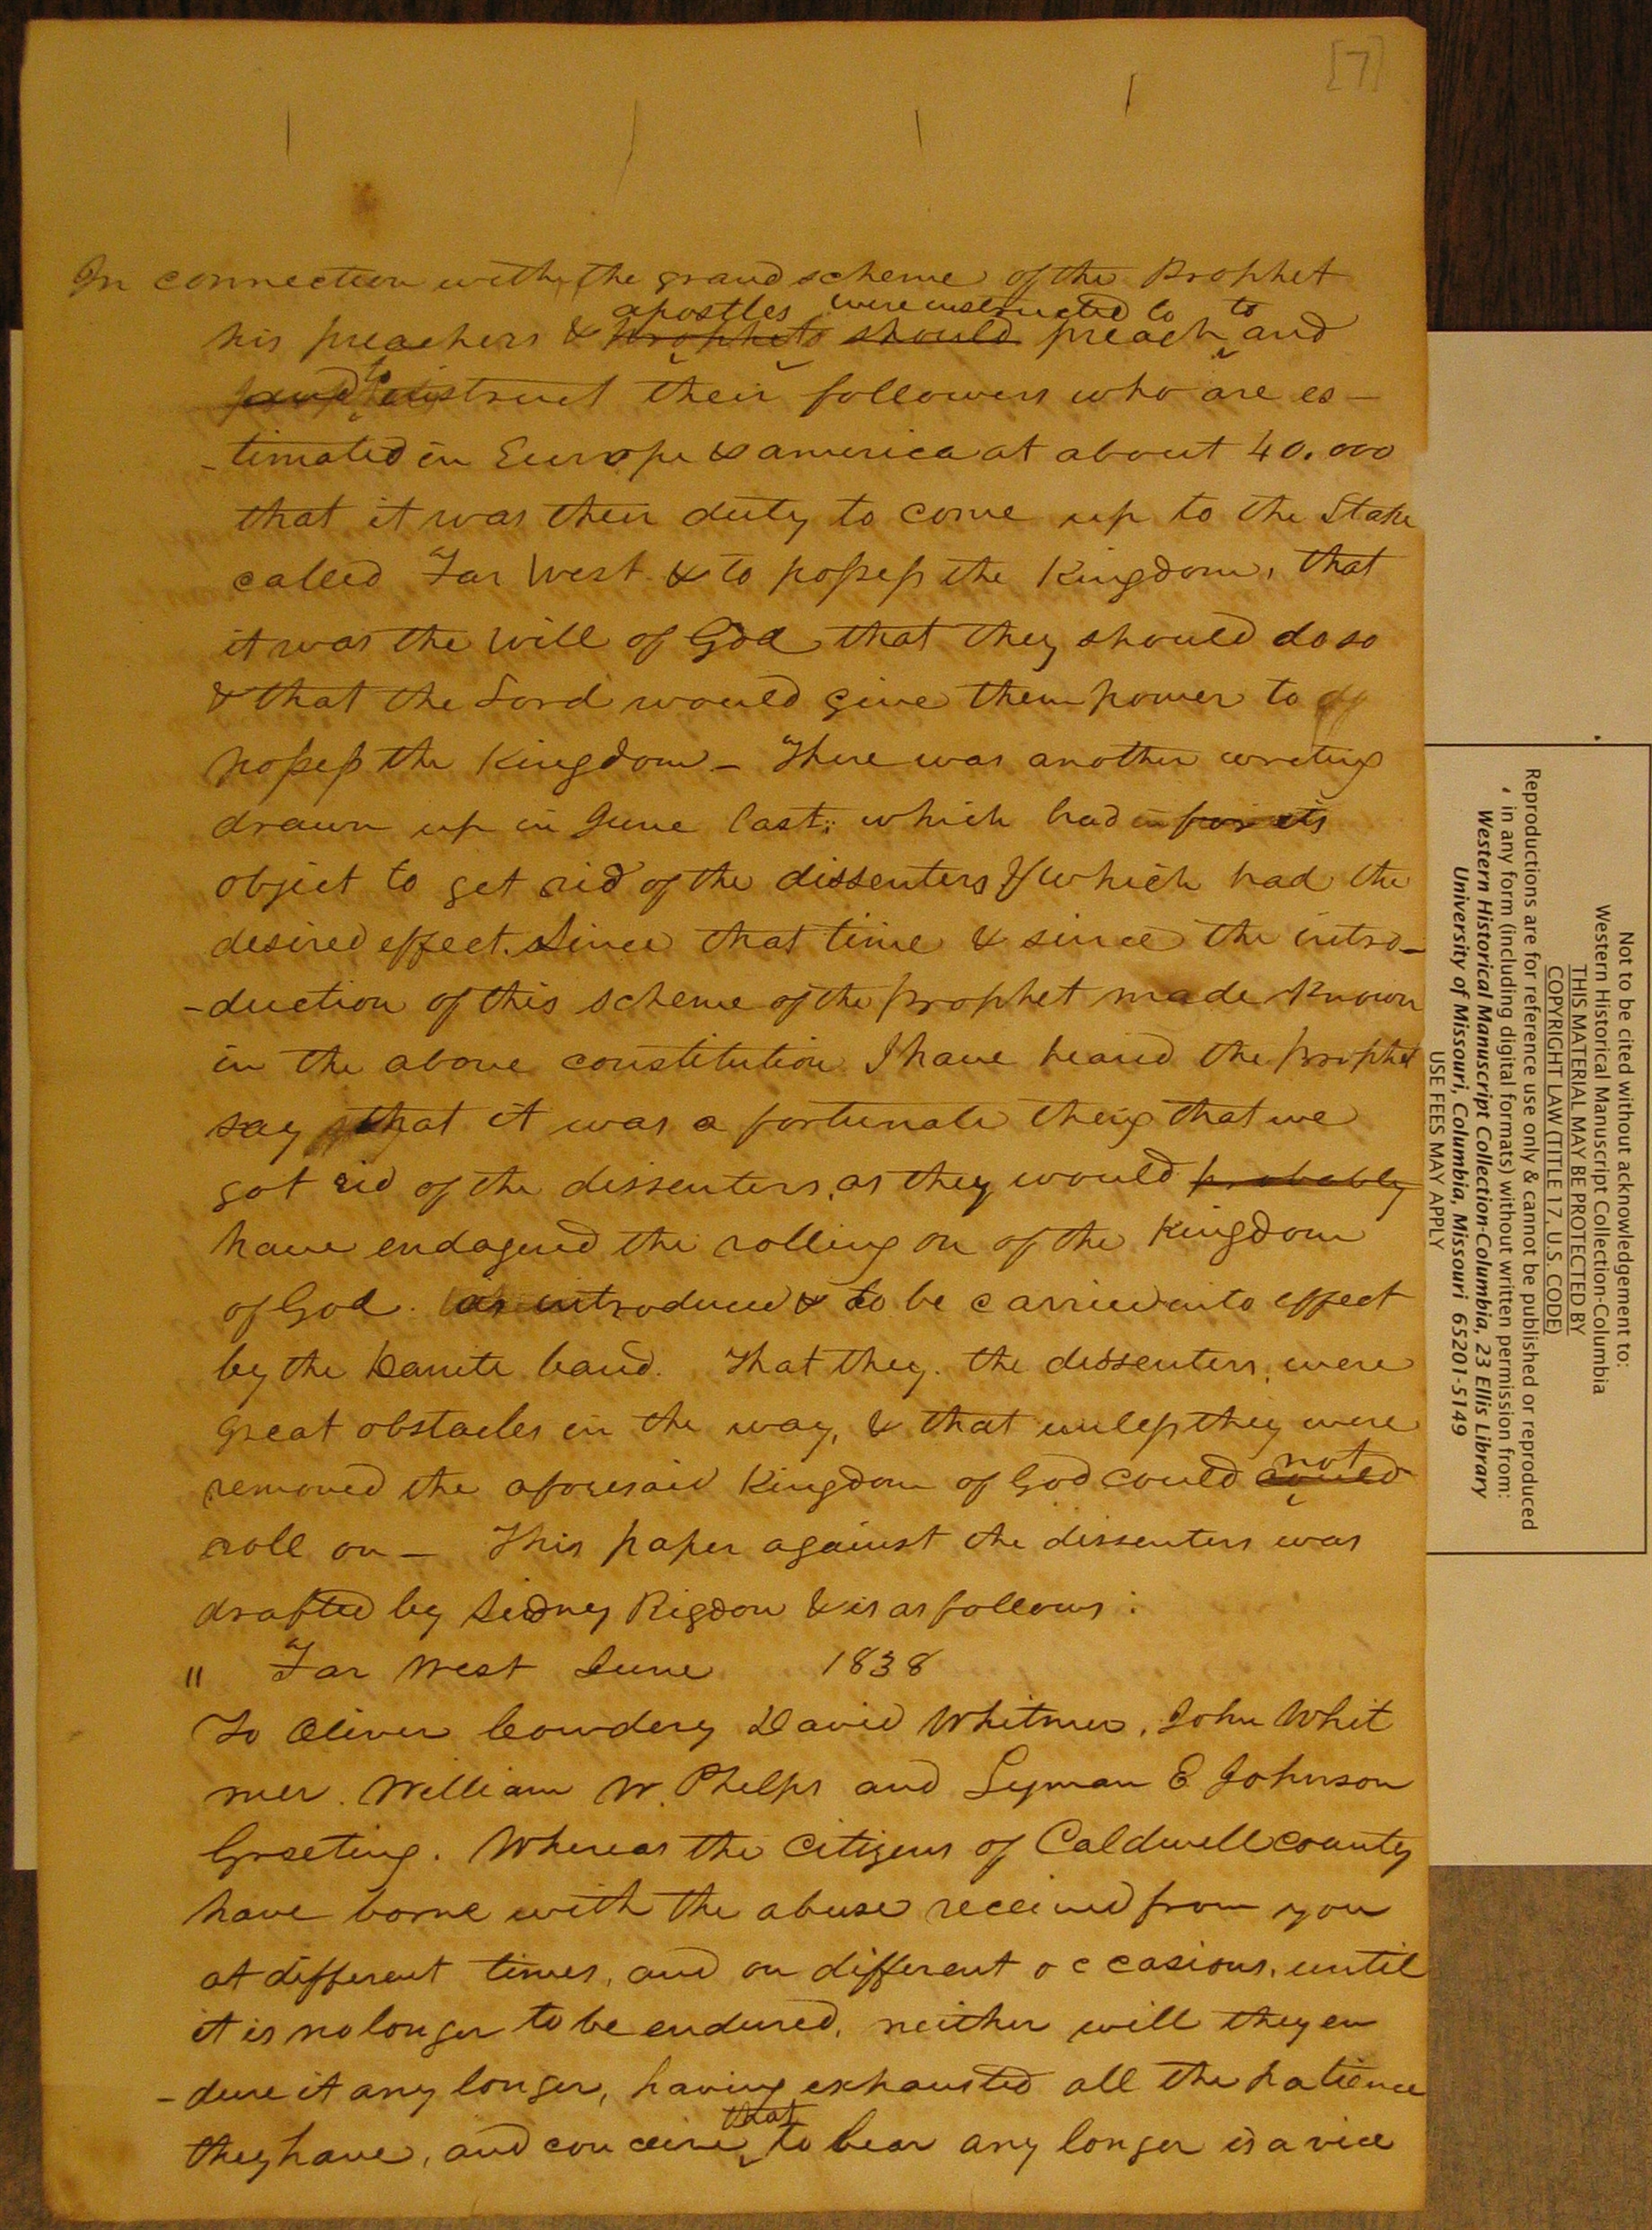 [7]
In connection with the grand scheme of the Prophet
apostles were instructed to to
his preachers & prophets should preach and
to
instruct their followers who are es-
-timated in Europe & america at about 40.000
that it was their duty to come up to the Stake
called Far West & to possess the Kingdom, that
it was the will of God that they should do so
& that the Lord would give them power to
possess the Kingdom - There was another writing
drawn up in June last, which had for its
object to get rid of the dissenters & which had the
desired effect. Since that time & since the intro-
-duction of this scheme of the prophet made known
in the above constitution I have heard the prophet
say that it was a fortunate thing that we
got rid of the dissenters, as they would probably
have endagered the rolling on of the Kingdom
of God. as introduced & to be carried into effect
by the Danite band. That they. the dissenters, were
great obstacles in the way, & that unless they were
not
removed the aforesaid Kingdom of God could could
roll on - This paper against the dissenters was
drafted by Sidney Rigdon & is as follows:
" Far West June 1838
To Oliver Cowdery David Whitmer, John Whit
mer. William W. Phelps and Lyman E Johnson
Greeting. Whereas the citizens of Caldwell county
have borne with the abuse received from you
at different times, and on different occasions, until
it is no longer to be endured, neither will they en
-dure it any longer, having exhausted all the patience
that
they have, and conceive to bear any longer is a vice
Not to be cited without acknowledgement to:
Western Historical Manuscript Collection-Columbia
THIS MATERIAL MAY BE PROTECTED BY
COPYRIGHT LAW (TITLE 17, U.S. CODE)
Reproductions are for reference use only & cannot be published or reproduced
in any form (including digital formats) without written permission from:
Western Historical Manuscript Collection-Columbia, 23 Ellis Library
University of Missouri, Columbia, Missouri 65201-5149
USE FEES MAY APPLY